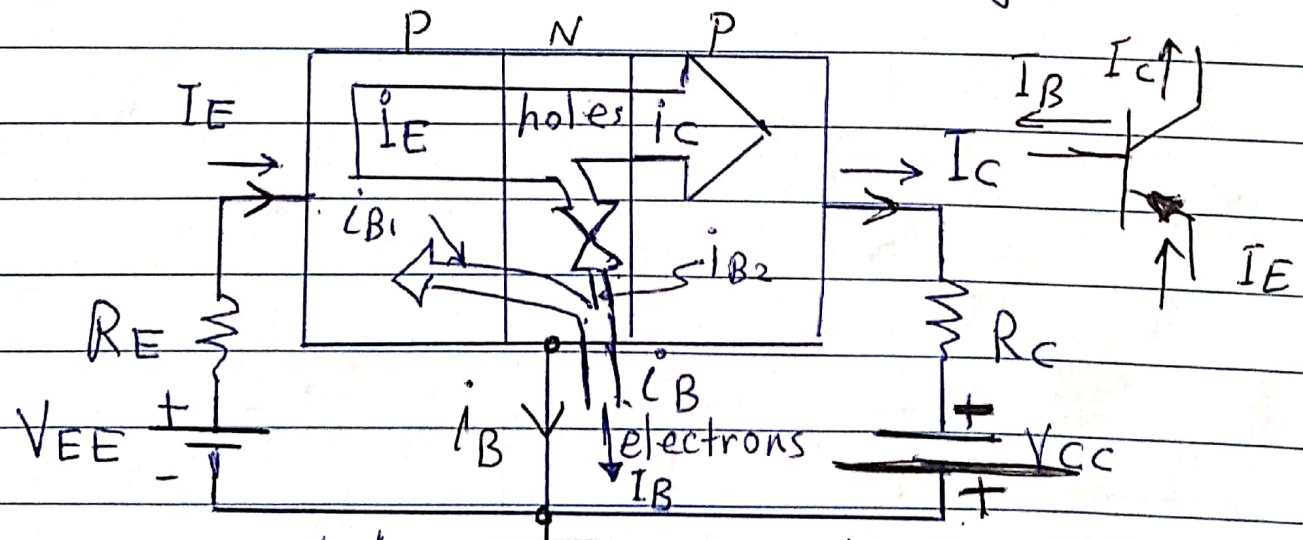 P N P
I_E
i_E holes i_C
I_C
I_B I_C
I_E
i_B1
i_B2
R_E
R_C
V_EE + -
i_B
i_B
electrons
I_B
+ V_CC +